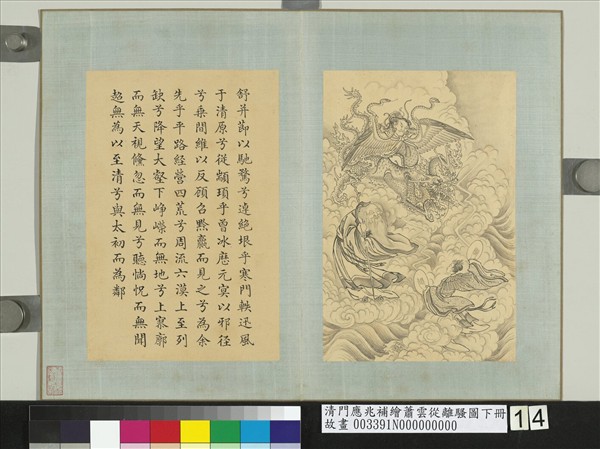 舒并節以馳騖兮逴絕垠乎寒門軼迅風
于清原兮從顓頊乎曾冰歷元冥以邪徑
兮乘間維以反顧召黔嬴而見之兮為余
先乎平路經營四荒兮周流六漠上至列
缺兮降望大壑下崢嶸而無地兮上寥廓
而無天視儵忽而無見兮聽惝怳而無聞
超無為以至清兮與太初而為鄰
清門應兆補繪蕭雲從離騷圖下冊
故畫 003391N000000000
14